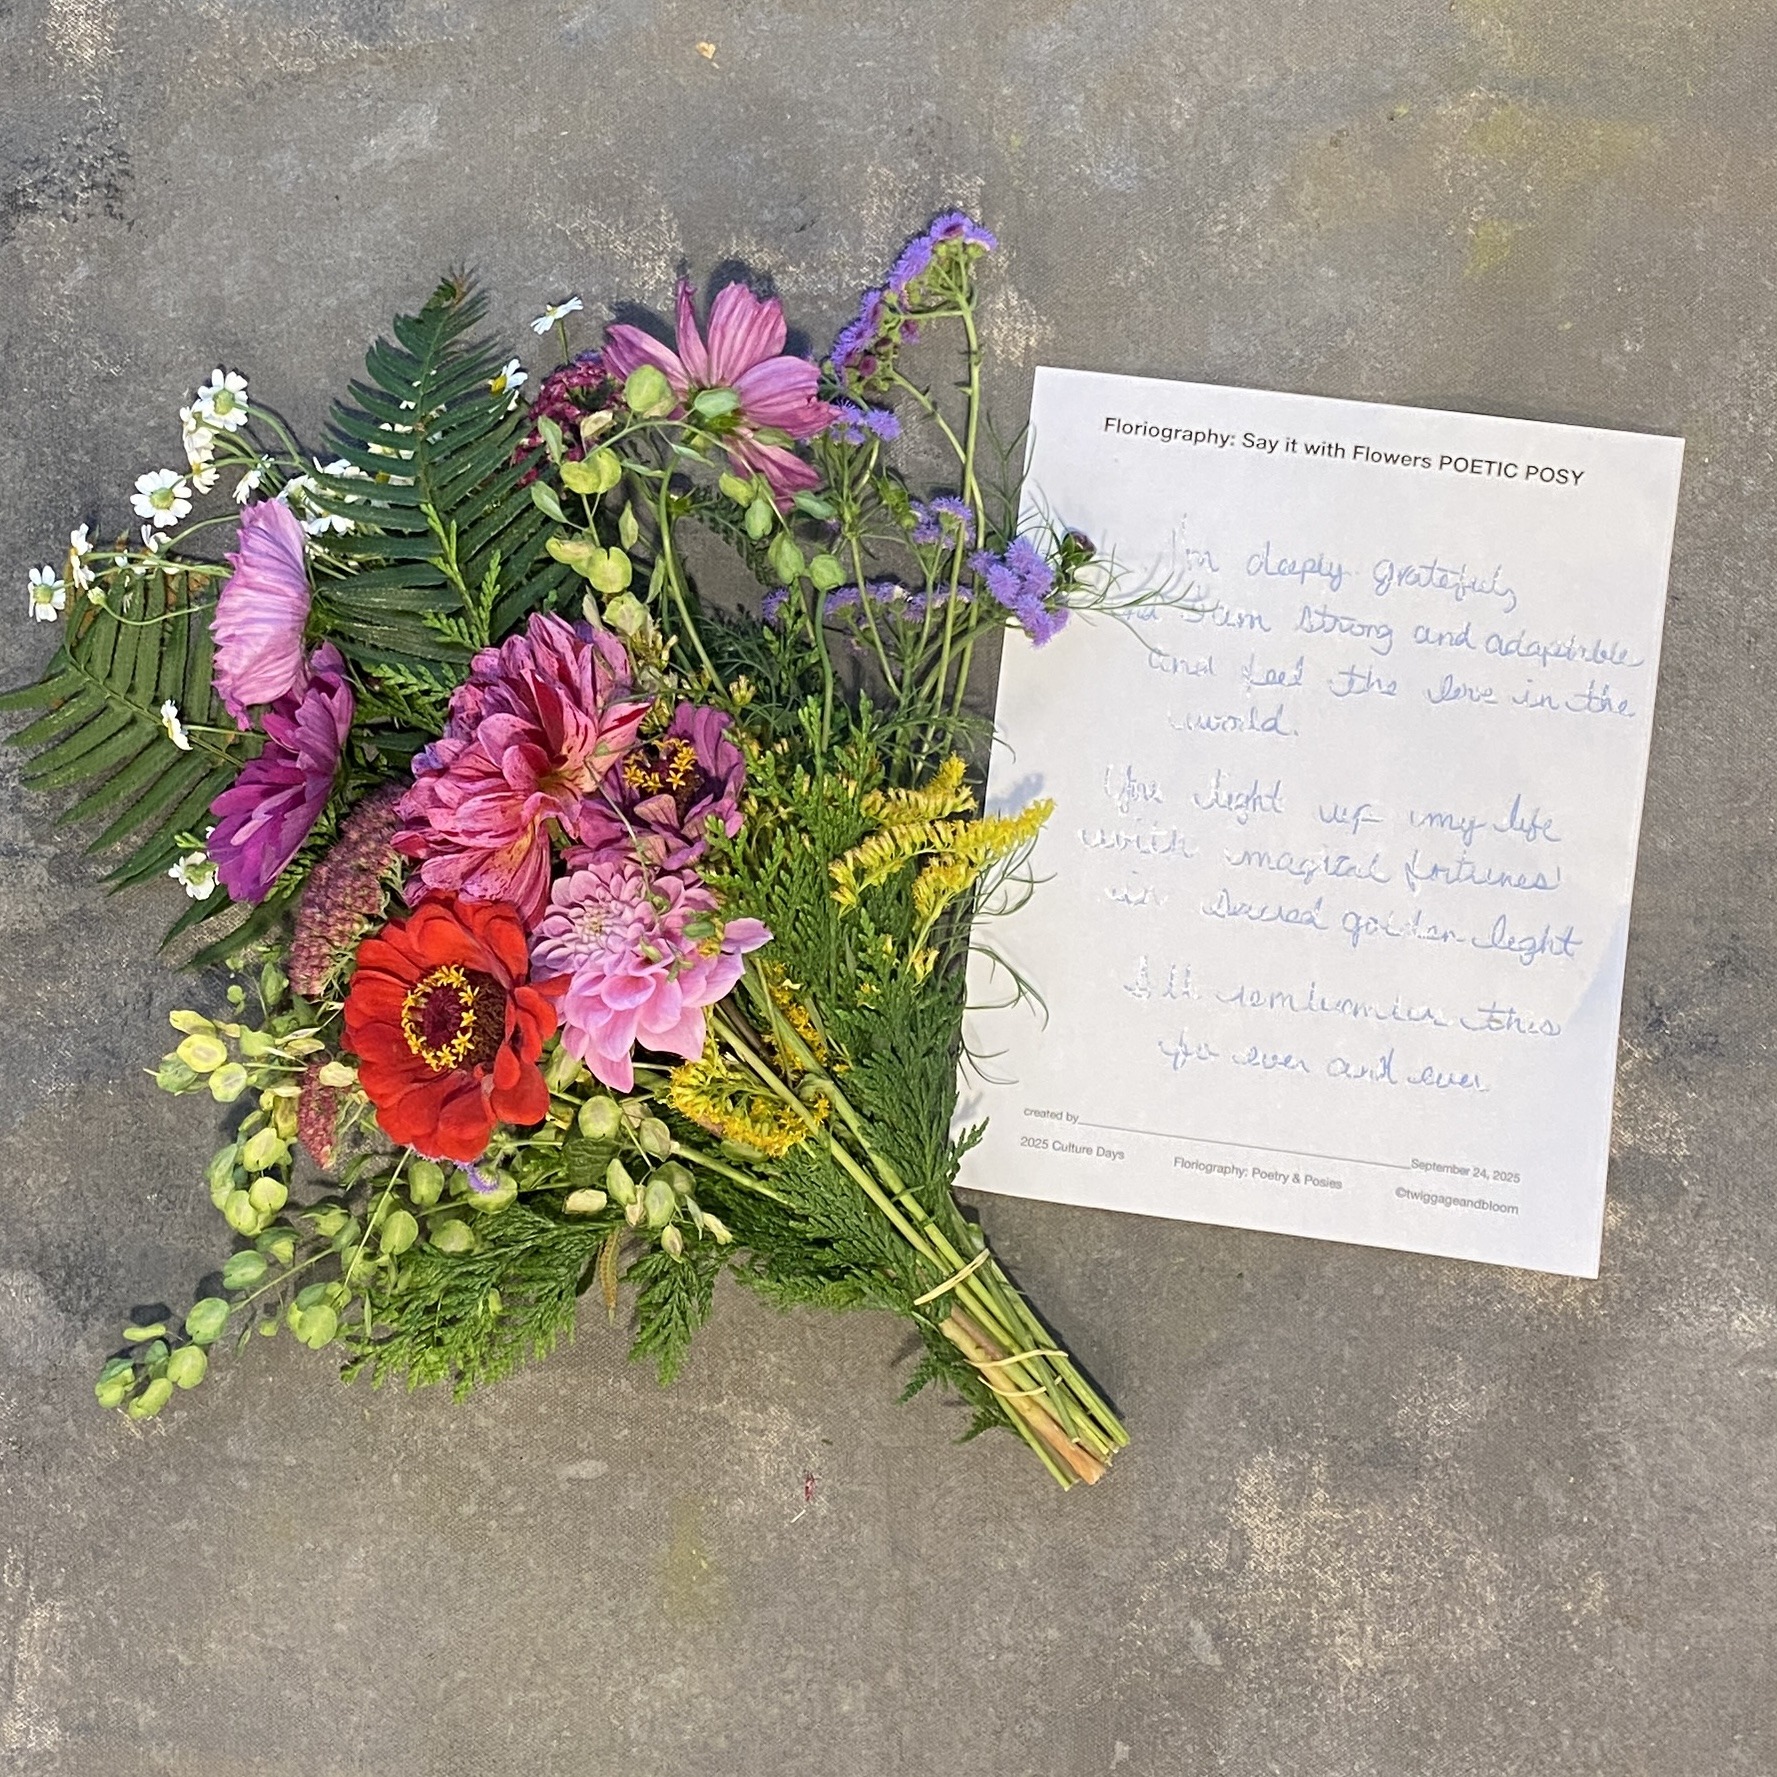 Floriography: Say it with Flowers POETIC POSY
I'm deeply grateful,
I am strong and adaptable
and feel the love in the
world.
You light up my life
with magical fortunes
in sacred golden light
I'll remember this
for ever and ever
created by
September 24, 2025
2025 Culture Days
Floriography: Poetry & Posies
©twiggageandbloom